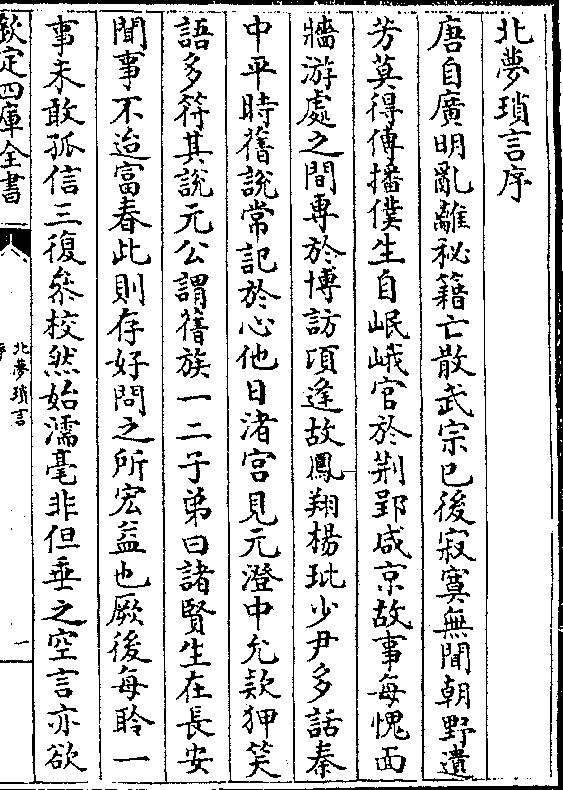 北夢瑣言序
唐自廣明亂離秘籍亡散武宗已後寂寞無聞朝野遺
芳莫得傳播僕生自岷峨官於荆郢咸京故事每愧面
牆游處之間專於博訪頃逢故鳳翔楊玭少尹多話秦
中平時舊說常記於心他日渚宮見元澄中允款狎笑
語多符其說元公謂舊族一二子弟曰諸賢生在長安
聞事不迨富春此則存好問之所宏益也厥後每聆一
事未敢孤信三復叅校然始濡毫非但垂之空言亦欲
欽定四庫全書
北夢瑣言
序
一